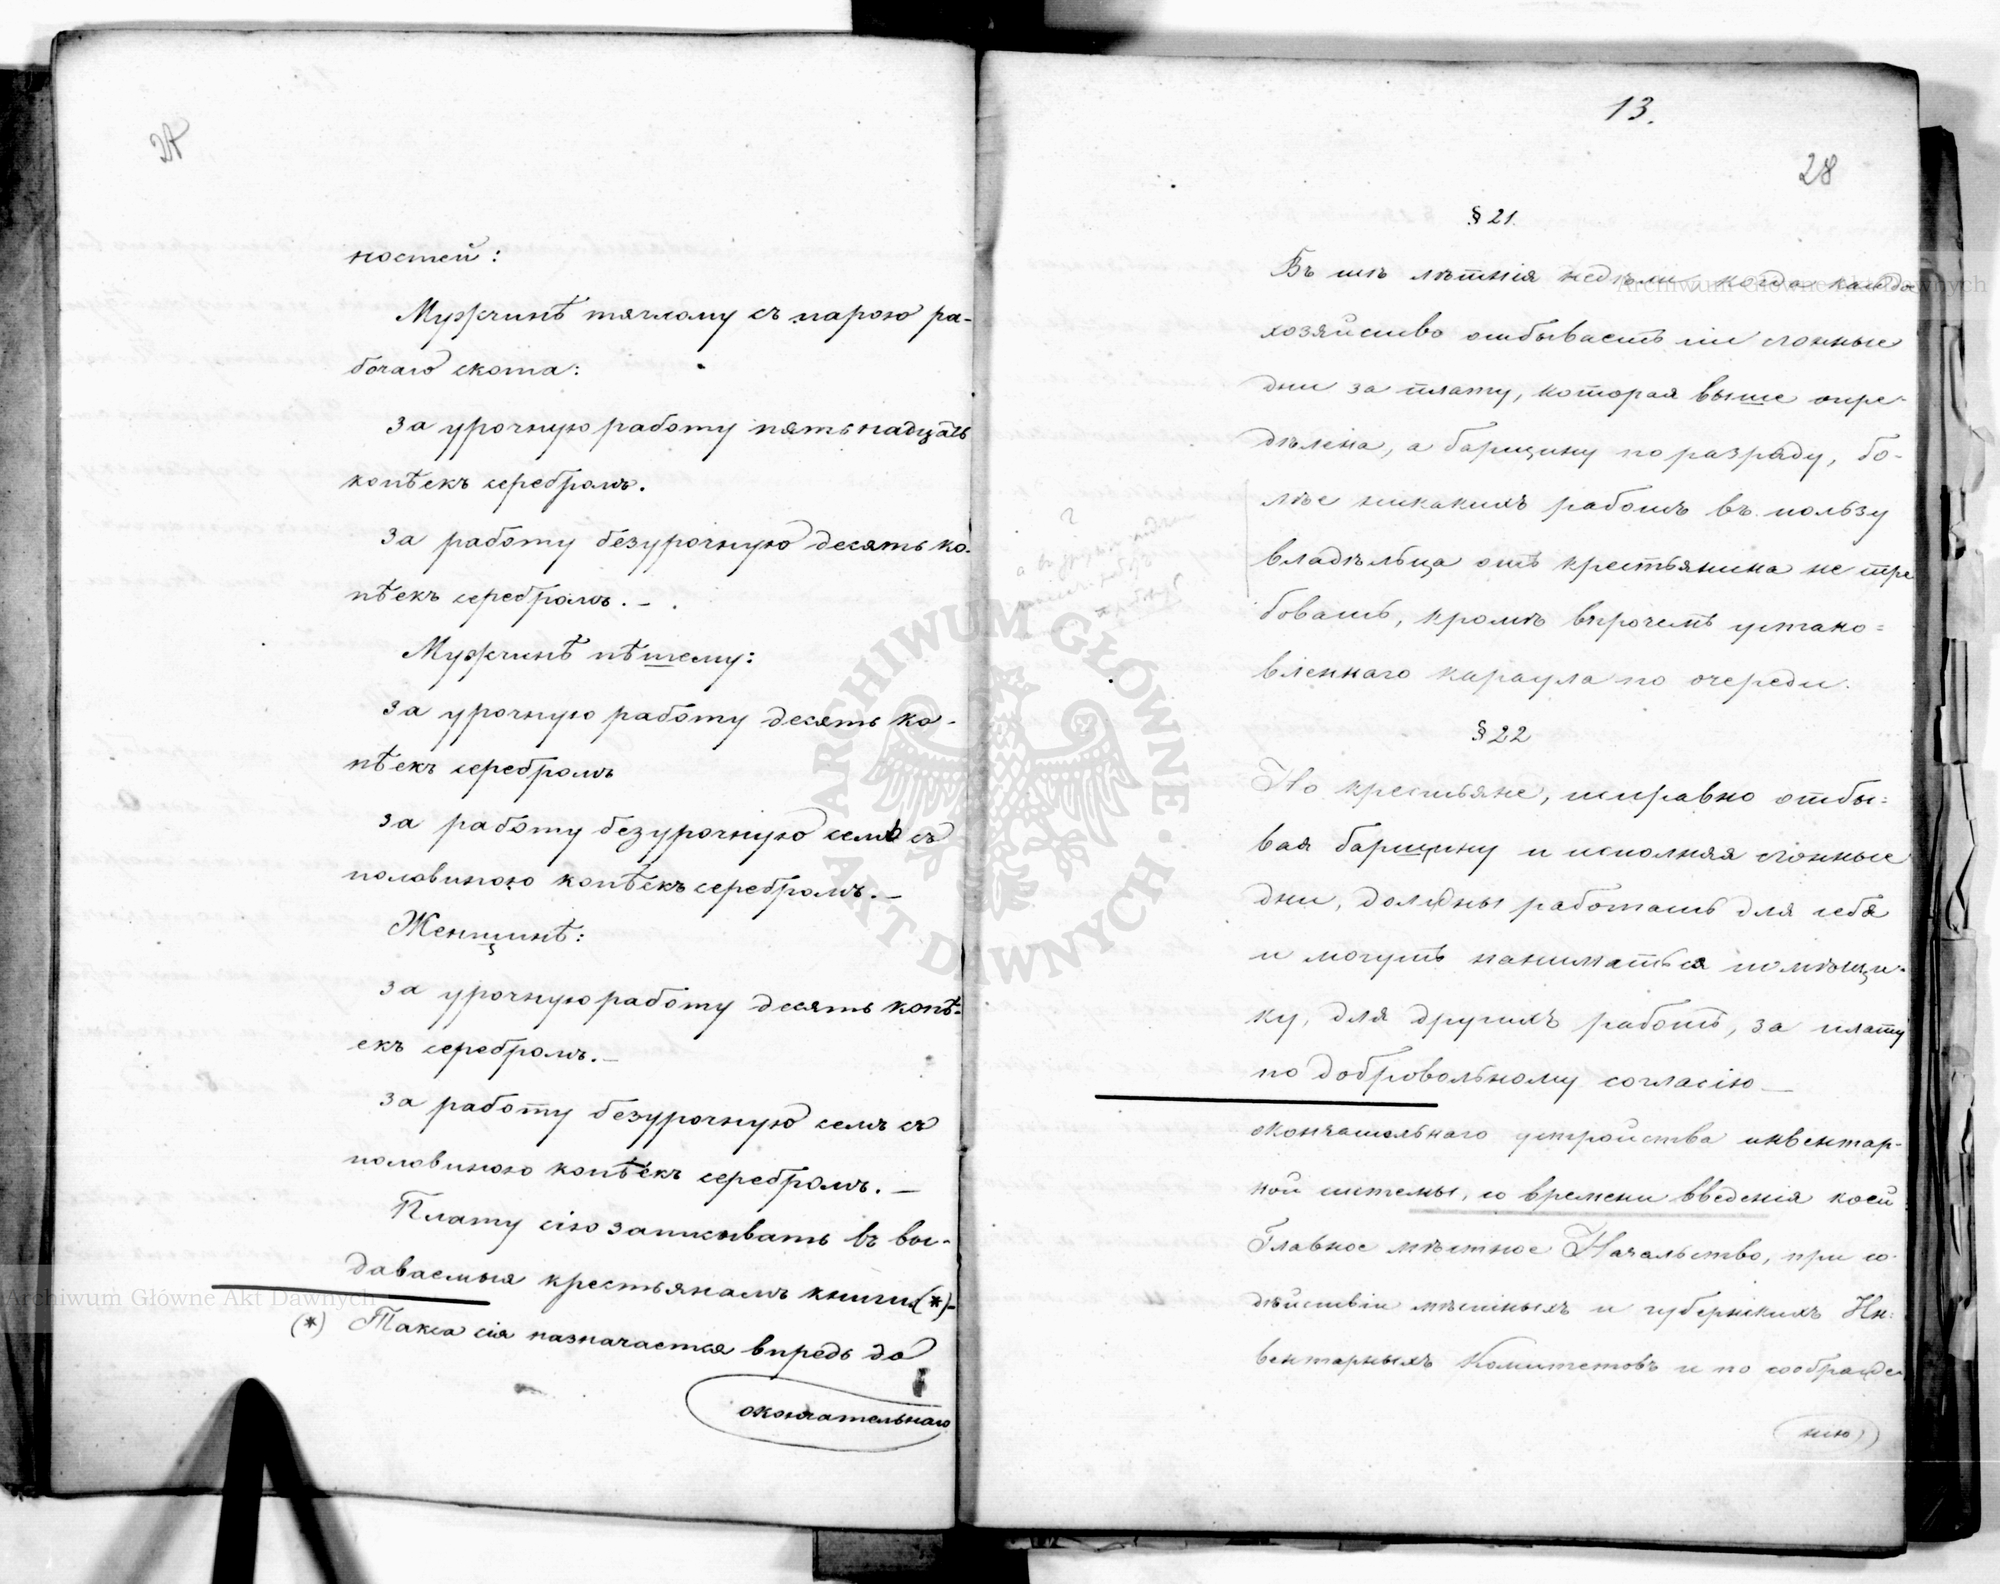 ностей:
Мужчинѣ тяглому съ парою ра-
бочаго скота:
за урочную работу пятьнадцать
копѣекъ серебромъ.
За работу безурочную десять ко-
пѣекъ серебромъ. –
Мужчинѣ пѣшему:
за урочную работу десять ко-
пѣекъ серебромъ
за работу безурочную семь съ
половиною копѣекъ серебромъ. –
Женщинѣ:
за урочную работу десять копѣ-
екъ серебромъ. –
за работу безурочную семь съ
половиною копѣекъ серебромъ. –
Плату сію записывать въ вы-
даваемыя крестьянамъ книги (*) –
(*) Такса сія назначается впредь до
окончательнаго
13.
28
§ 21.
Въ тѣ лѣтнія недѣли, когда каждо
хозяйство отбываетъ сгонные
дни за плату, которая выше опре-
дѣлена, а барщину по разряду, бо-
лѣе никакихъ работъ въ пользу
владѣльца отъ крестьянина не тре
бовать, кромѣ впрочемъ устано=
вленнаго караула по очереди.
§ 22
Но крестьяне, исправно отбы=
вая барщину и исполняя сгонные
дни, должны работать для себя
и могутъ наниматься помѣщи-
ку, для другихъ работъ, за плату
по добровольному согласію –
окончательнаго устройства инвентар-
ной системы, со времени введенія коей
Главное мѣстное Начальство, при со-
дѣйствіи мѣстныхъ и губернскихъ Ин=
вентарныхъ Комитетовъ и по соображе
нію
ARCHIWUM GŁÓWNE AKT DAWNYCH
Archiwum Główne Akt Dawnych
Archiwum Główne Akt Dawnych